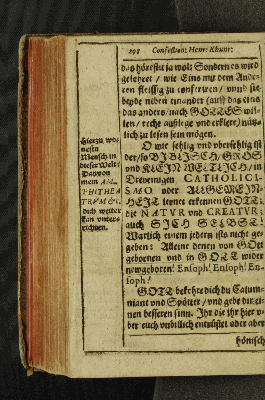 298 Confession: Henr: Khunr:
das hörestu ja wol: Sondern es wird
gelehret / wie Eins mit dem Ande-
ren fleissig zu conferiren / vnnd sie
beyde neben einander (auff das eins
das ander / nach GOTTES wil-
len / recht auslege vnd erkläre) nütz-
lich zu lesen sein mögen.
O wie selig vnd vberselig ist
der / so BIBLISCH / GROS
vnd KLEIN WELTLICH / in
Dreyeinigen CATHOLICI-
SMO oder ALLGEMEIN-
HEIT lernet erkennen GOTT;
die NATVR vnd CREATVR;
auch SICH SELBST!
Warlich einem jedern ists nicht ge-
geben: Alleine denen von GOTT
gebornen vnd in GOTT wider
newgeboren! Ensoph! Ensoph! En-
soph!
GOTT bekehre dich du Calum-
niant vnd Spötter / vnd gebe dir ei-
nen besseren sinn. Ihr die ihr hier v-
ber euch vnbillich entrüstet oder aber
hönisch
Mensch in
dieser Welt:
Dauon
mein AM-
PHITHEA-
TRVM &c.
dich weiter
kan vnter-
richten.